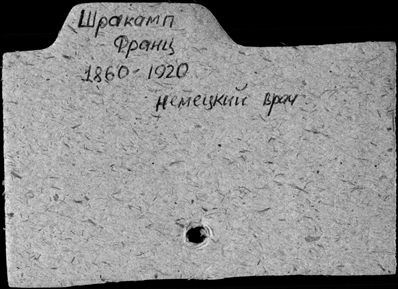 Шракамп
Франц
1860-1920
немецкий врач